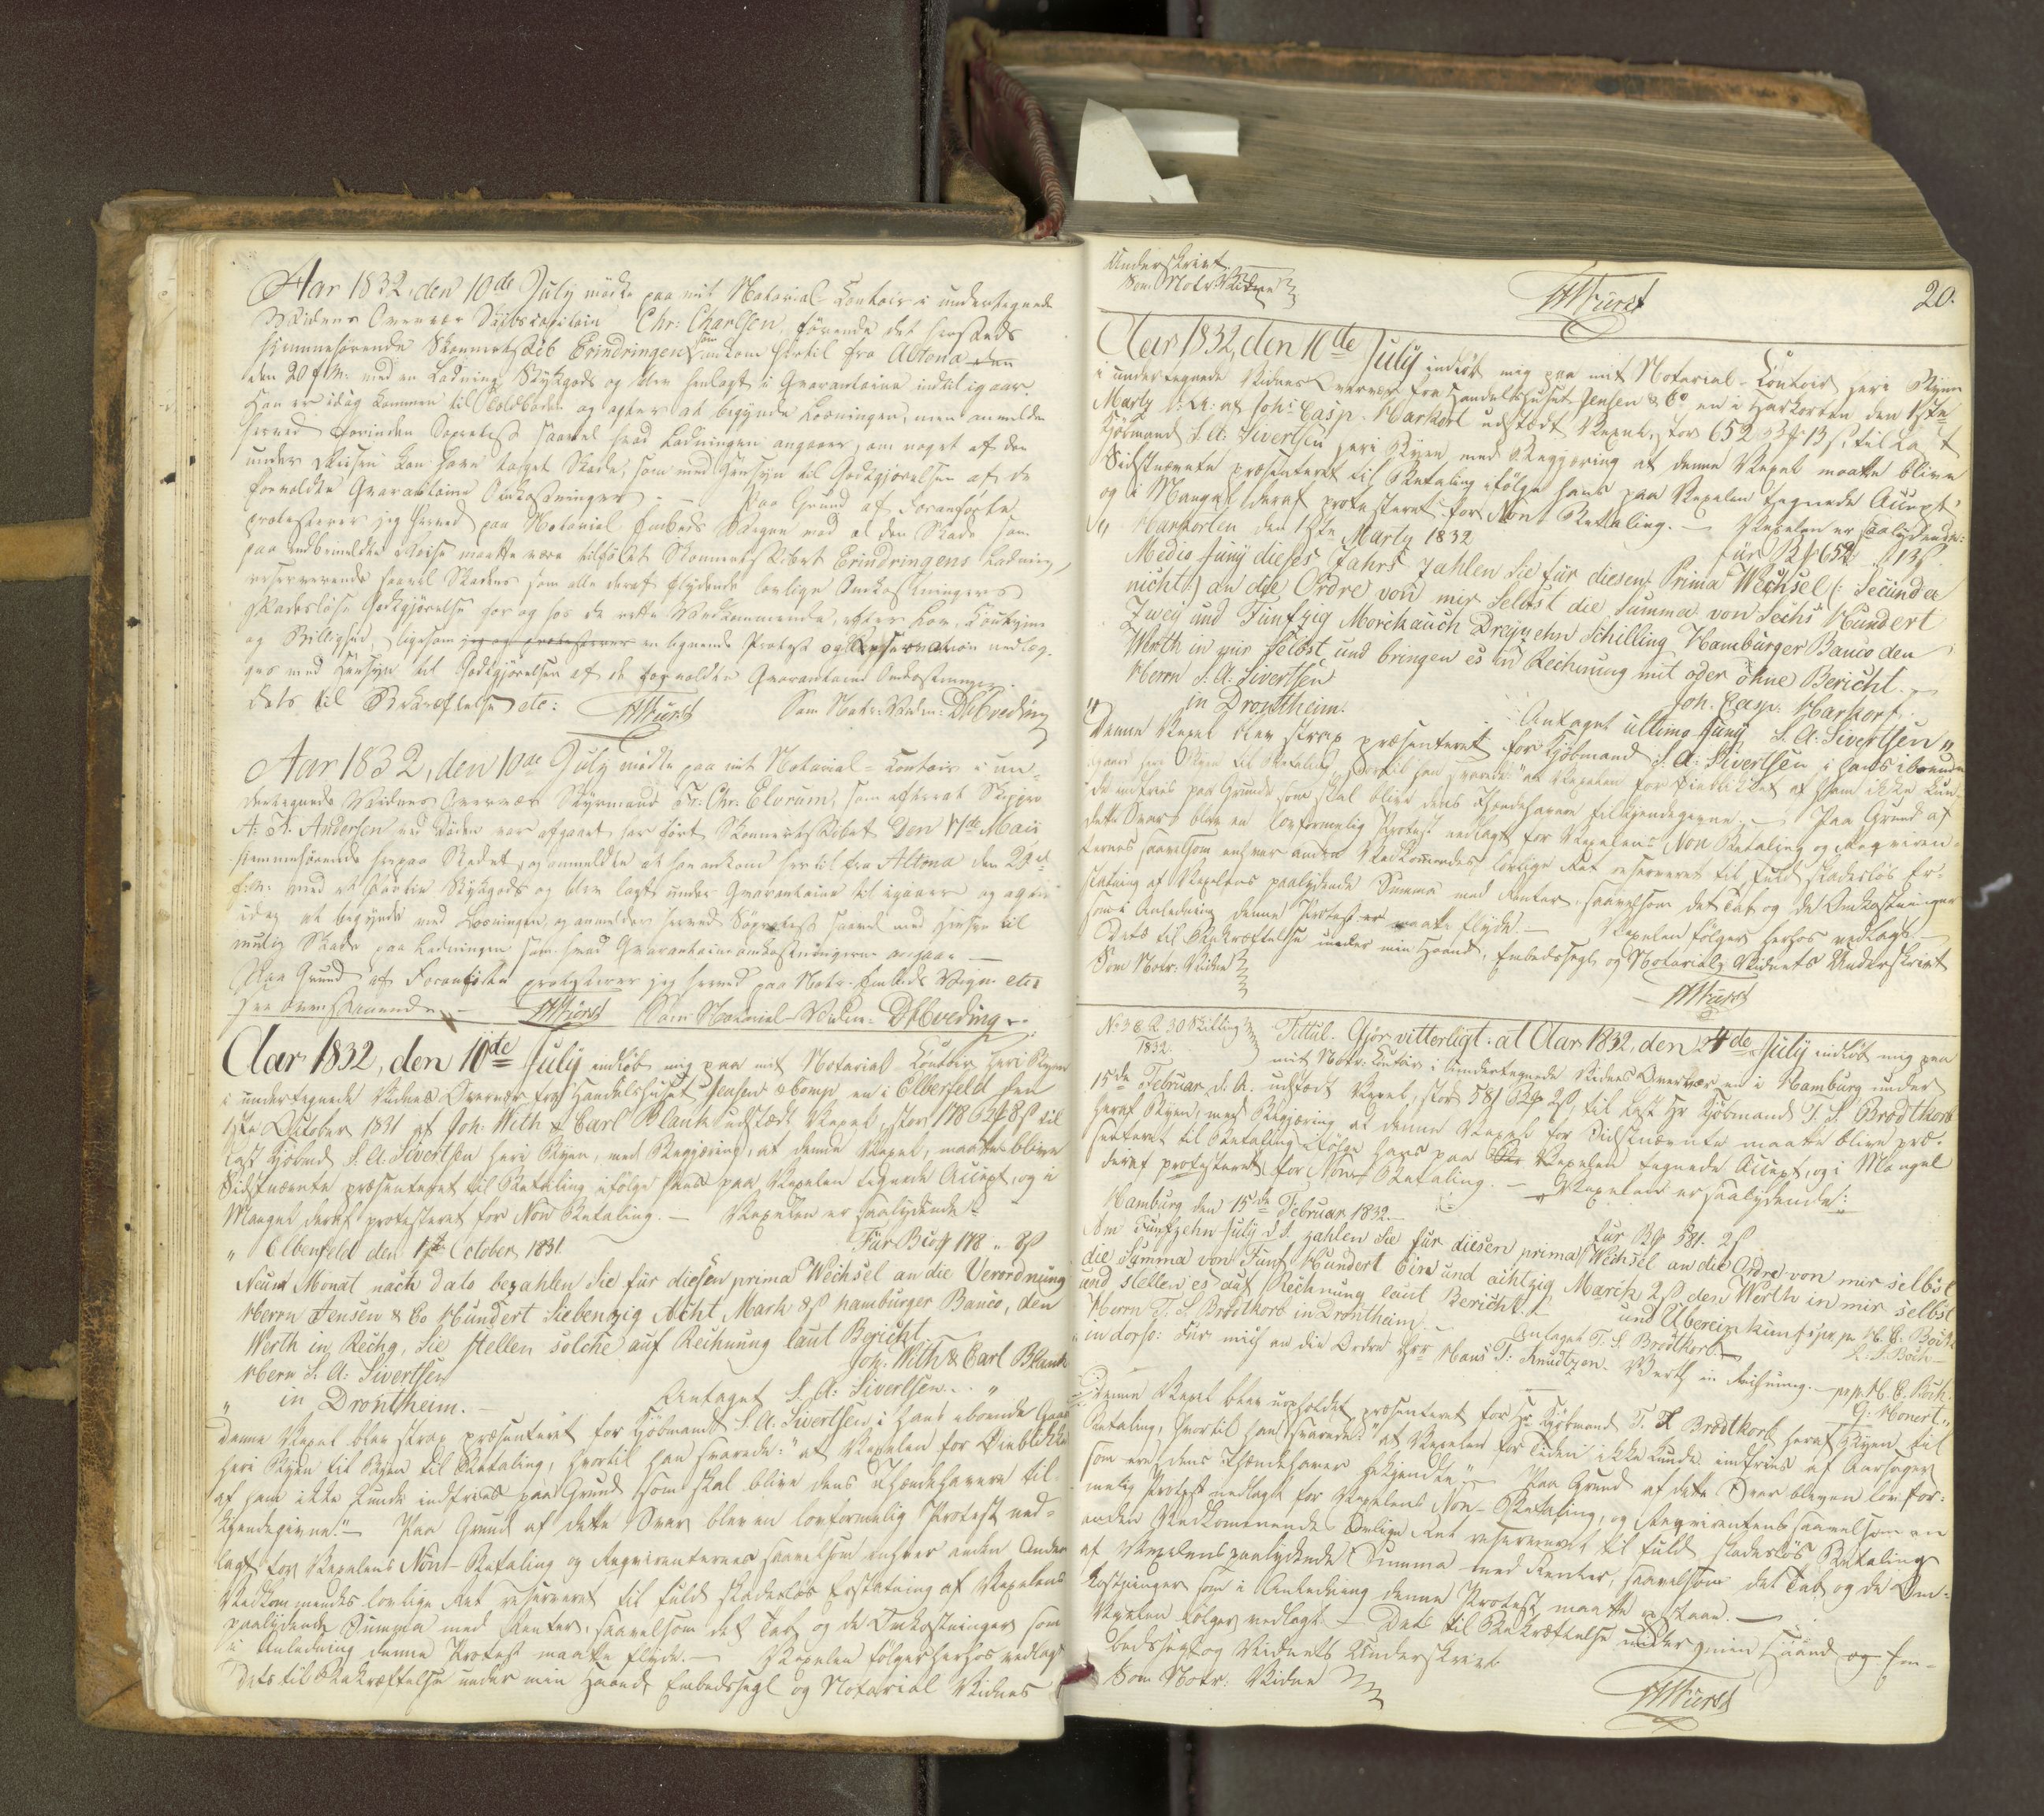 Aar 1832, den 10de July mödte paa mit Notarial-Contoir i undertegnede
Vidners Overvær Skibscapitain Chr: Charlsen, förende det herstæds
hjemmehörende Skonnertskib Erindringen, som ankom hertil fra Altona den
den 20 f.M. med en Ladning Stykgods og blev henlagt i Qvarantaine indtil igaar.
Han er idag kommen til og agter at begynde Losningen, men anmelder
herved forinden Söprotest saavel hvad Ladningen angaaer, om noget af den
under Reisen kan have taget Skade, som med Hensyn til Godtgjörelsen af de
forvoldte Qvarantaine Omkostninger. — Paa Grund af Foranförte
protesterer jeg herved paa Notarial Embeds Vegne mod al den Skade som
paa ommeldte Reise maatte være tilföiet Skonnertskibet Erindringens Ladning,
reserverende saavel Skadens som alle deraf flydende lovlige Omkostningers
skadeslöse Godtgjörelse for og hos de rette Vedkommende, efter Lov, Coutyme
og Billighed, ligesom jeg og protesterer en lignende Protest og Reservation nedlæg-
ges med Hensyn til Godtgjörelsen af de forvoldte Qvarantaine Omkostninger.
Dets til Bekræftelse etc: Som Notr: Vidn: DHveding
Aar 1832, den 10de July mödte paa mit Notarial-Contoir i un-
dertegnede Vidners Overvær Styrmand Fr. Chr. Elvrum, som efterat Skipper
A: A: Andersen ved Döden var afgaaet, har fört Skonnertskibet Den 17de Maii
hjemmehörende her paa Stedet, og anmeldte at han ankom hertil fra Altona den 29de
f:M: med et Partie Stykgods og blev lagt under Qvarantaine til igaar og agter
idag at begynde med Losningen, og anmelder herved Söprotest saavel med Hensyn til
mulig Skade paa Ladningen som hvad Qvarantaineomkostningerne angaar. —
Paa Grund af Foranförte protesterer jeg herved paa Notr. Embeds Vegne etc:
see ovenstaaende. — Som Notarial-Vidne: DHveding
Aar 1832, den 10de July indlöb mig paa mit Notarial-Contoir heri Byen
i undertegnede Vidners Overvær fra Handelshuset Jensen & Comp en i Elberfeld den
1ste October 1831 af Joh: With & Carl Blank udstædt Vexel, stor 178 Bco 8ß til
Last Kjöbmd S. A. Sivertsen heri Byen, med Begjæring, at denne Vexel, maatte blive
Sidstnævnte præsenteret til Betaling ifölge hans paa Vexelen tegnede Accept, og i
Mangel deraf protesteret for Non Betaling. — Vexelen er saalydende:
„ Elberfeld den 1ste October 1831. Für Bco 178 „ 8ß
Neun Monat nach dato bezahlen Sie für diesen prima Wechsel an die Verordnung
Herrn Jensen & Co Hundert Siebenzig Acht Mark 8ß hamburger Banco, den
Werth in Rechg, Sie stellen solche auf Rechnung laut Bericht
Joh. With & Carl Blank
Herrn S. A. Sivertsen
„ in Drontheim. — Antaget S. A: Sivertsen. „
Denne Vexel blev strax præsenteret for Kjöbmand S. A. Sivertsen, i hans iboende Gaard
heri Byen til Byen til Betaling, hvortil han svarede: "at Vexelen for Öieblikket
af ham ikke kunde indfries paa Grund som skal blive dens Ihændehavere til-
kjendegivne". — Paa Grund af dette Svar blev en lovformelig Protest ned-
lagt for Vexelens Non-Betaling og Reqvirenternes saavelsom enhver anden
Vedkommendes lovlige Ret reserveret til fuld skadeslös Erstatning af Vexelens
paalydende Summa med Renter, saavelsom det Tab og de Omkostninger som
i Anledning denne Protest maatte flyde. — Vexelen fölger herhos vedlagt
Dets til Bekræftelse under min Haand Embedssegl og Notarial Vidnes
Underskrivt.
Som Notr Vidne
20.
Aar 1832, den 10de July indlöb mig paa mit Notarial-Contoir heri Byen
i undertegnede Vidners Overvær fra Handelshuset Jensen & Co en i Harkorten den 1ste
Marty d: A: af Joh: Casp. Harkort udstædt Vexel, stor 652 13ß, til Last
Kjöbmand S. A: Sivertsen heri Byen med Begjæring at denne Vexel maatte blive
Sidstnævnte præsenteret til Betaling ifölge hans paa Vexelen tegnede Accept,
og i Mangel deraf protesteret for Non Betaling. — Vexelen er saalydende:
„ Harkorten den 1ste Marty 1832 für 652 13ß.
Medio Juny dieses Jahrs zahlen Sie für diesen Prima Wechsel (: Secunda
nicht:) an die Ordre von mir Selbst die Summa von Sechs Hundert
Zwey und Fünfzig Marckauch Dreyzehn Schilling Hamburger Banco den
Werth in mir Selbst und bringen es in Rechnung mit oder ohne Bericht. —
Herrn S. A. Sivertsen Joh. Casp: Harkort.
„ in Drontheim. Antaget ultimo Juny S. A: Sivertsen „
Denne Vexel blev strax præsenteret for Kjöbmand S. A: Sivertsen i hans iboende
Gaard her i Byen til Betaling, hvortil han svarede: "at Vexelen for Öieblikket af ham ikke kun-
de indfries paa Grunde som skal blive dens Ihændehavere tilkjendegivne. — Paa Grund af
dette Svar blev en lovformelig Protest nedlagt for Vexelens Non Betaling og Reqviren-
ternes saavelsom enhver anden Vedkommendes lovlige Ret reserveret til fuld skadeslös Er-
statning af Vexelens paalydende Summa med Renter, saavelsom det Tab og de Omkostninger
som i Anledning denne Protest er maatte flyde. — Vexelen fölger herhos vedlagt. —
Dets til Bekræftelse under min Haand, Embedssegl og Notarial Vidnets Underskrivt
Som Notr. Vidne
No 38 à 30 Skilling Tittul. Gjör vitterligt: at Aar 1832, den 24de July indlöb mig paa
1832. mit Notr. Contoir i undertegnede Vidnes Overvær en i Hamburg under
15de Februar d. A. udstædt Vexel, stor 581 Bco 2ß, til Last Hr Kjöbmand T. S. Brodtkorb
heraf Byen, med Begjæring at denne Vexel for Sidstnævnte maatte blive præ-
senteret til Betaling ifölge hans paa Vexelen tegnede Accept, og i Mangel
deraf protesteret for Non Betaling. — Vexelen er saalydende:
Hamburg den 15de Februar 1832. — für 581. 2ß
Am Funfzehn July d. J. zahlen Sie für diesen prima Wechsel an die Ordre von mir selbst
die Summa von Funf Hundert Ein und achtzig Marck 2ß den Werth in mir selbst
und stellen es auf Rechnung laut Bericht. — und Übereinkunft pr pr H. C. Böck
Herrn T. S. Brodtkorb in Drontheim. — Antaget T. S. Brodtkorb —
„ in dorso: Für mich an die Ordre Hrr Hans T: Knudtzon Werth in Rechnung. — pr pr H. C. Böck.
Denne Vexel blev uopholdet præsenteret for Hr Kjöbmand T. S. Brodtkorb heraf Byen til
Betaling, hvortil han svarede: "at Vexelen for Tiden ikke kunde indfries af Aarsager
som ere dens Ihændehaver bekjendte". — Paa Grund af dette Svar blev en lovfor-
melig Protest nedlagt for Vexelens Non-Betaling, og Reqvirentens saavelsom en
anden Vedkommendes lovlige Ret reserveret til fuld skadeslös Betaling
af Vexelens paalydende Summa med Renter, saavelsom det Tab og de Om-
kostninger som i Anledning denne Protest maatte opstaae. —
Vexelen fölger vedlagt. — Dets til Bekræftelse under min Haand og Em-
bedssegl og Vidnets Underskrivt
Som Notr: Vidne